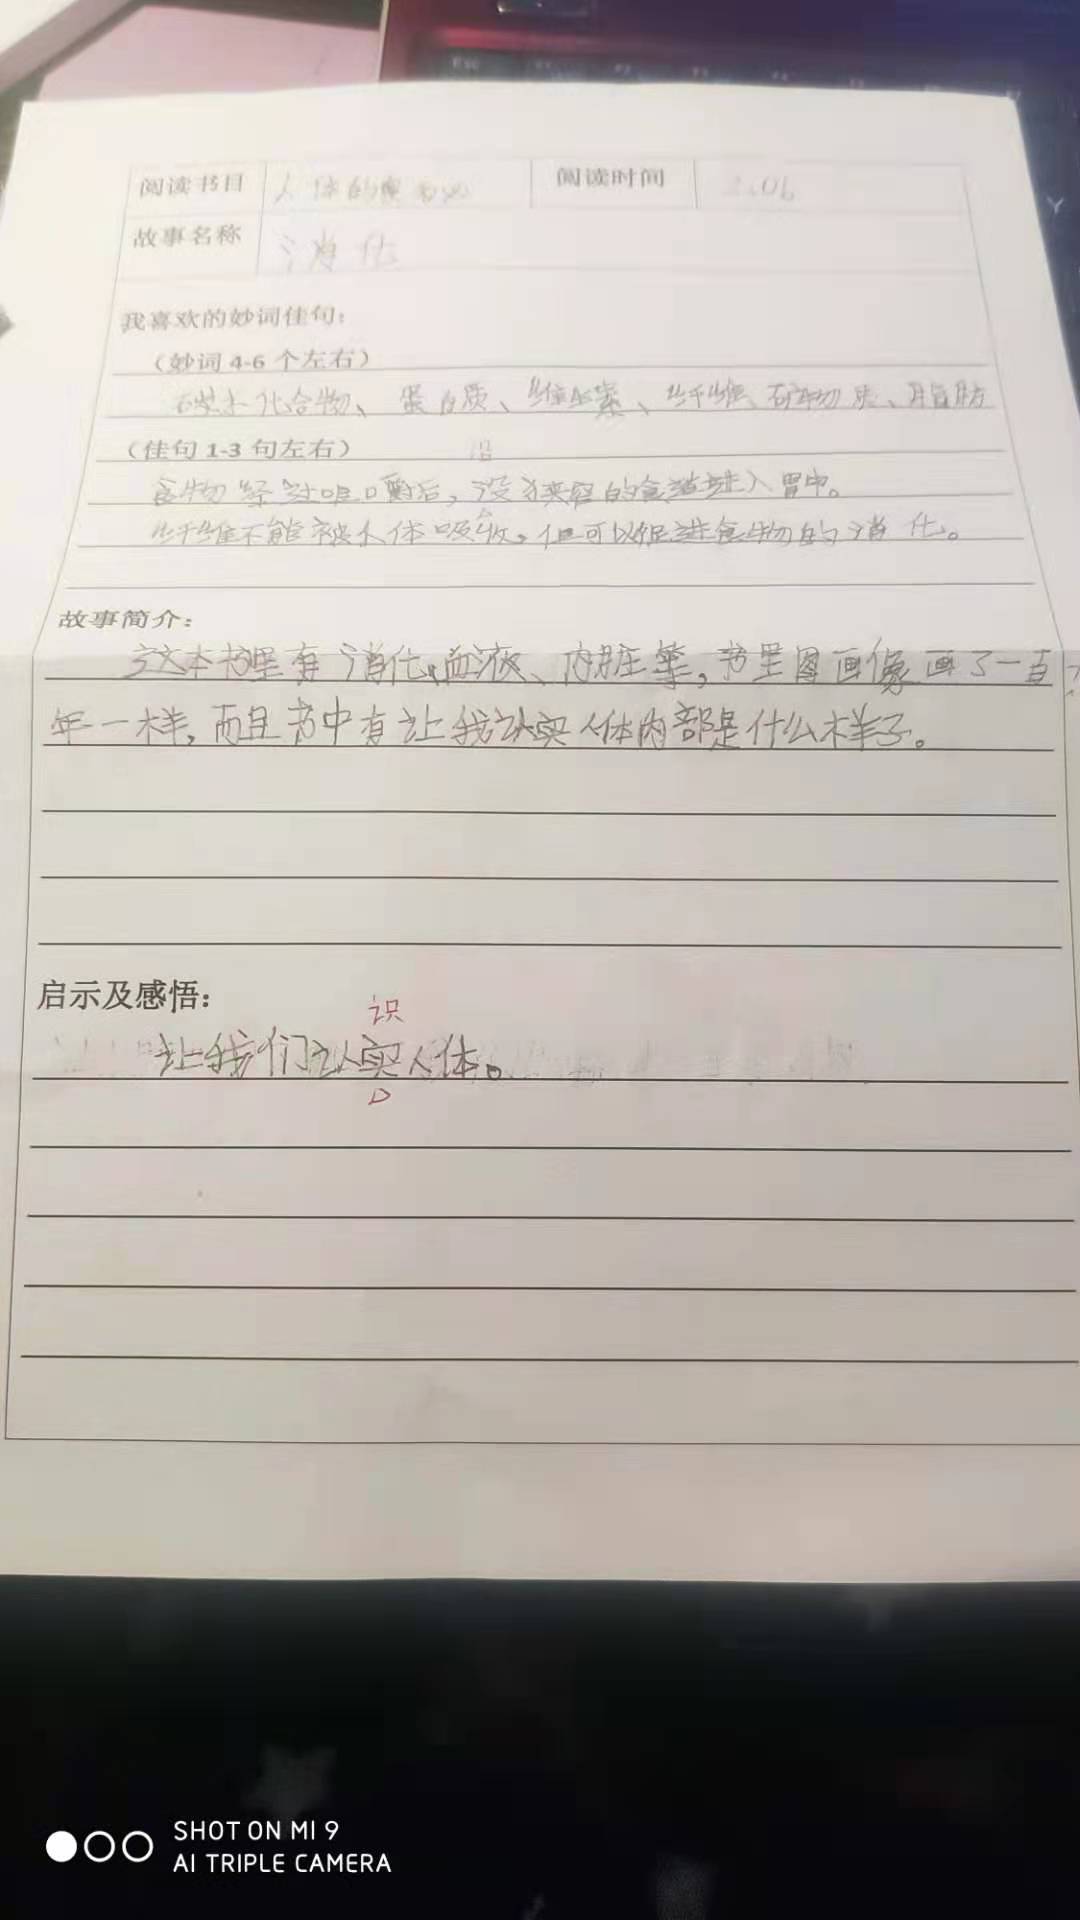 阅读书目 人体的奥秘 阅读时间 2.06
故事名称 消化
我喜欢的妙词佳句：
（妙词 4-6 个左右）
碳水化合物、蛋白质、维生素、纤维、矿物质、脂肪
（佳句 1-3 句左右）
沿
食物经过咀嚼后，没 的食道进入胃中。
纤维不能被人体吸收，但可以促进食物的消化。
故事简介：
这本书里有消化、血液、内脏等，书里图画像画了一百
年一样，而且书中有让我认实人体内部是什么样子。
启示及感悟：
识
让我们认实人体。
SHOT ON MI 9
AI TRIPLE CAMERA